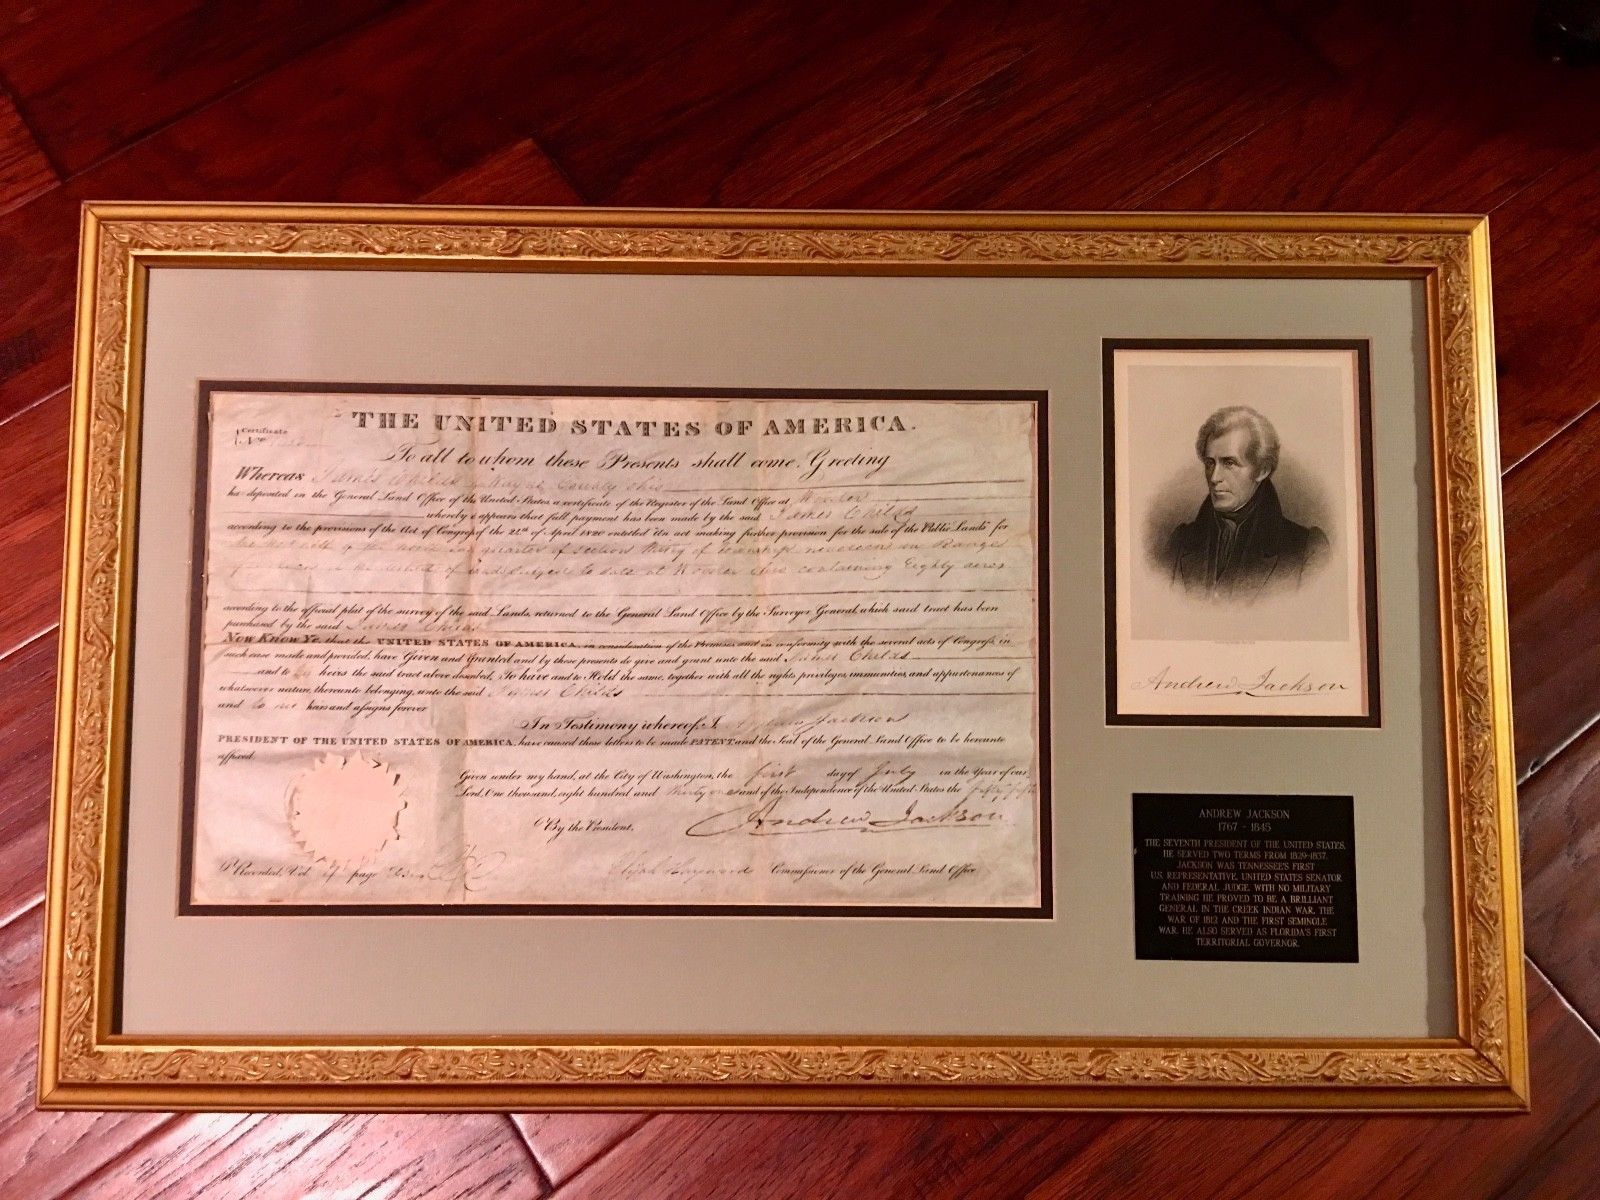 THE UNITED STATES OF AMERICA.
Certificate
No.
To all to whom these Presents shall come, Greeting
Whereas James Childs of Wayne County Ohio
has deposited in the General Land Office of the United States, a certificate of the Register of the Land Office at Wooster
whereby it appears that full payment has been made by the said James Childs
according to the provisions of the Act of Congress of the 24th of April 1820 entitled "An act making further provision for the sale of the Public Lands" for
the West half of the north quarter of section thirty of township nineteen in Range
of in the district of lands subject to sale at Wooster Ohio containing Eighty acres
according to the official plat of the survey of the said Lands, returned to the General Land Office by the Surveyor General, which said tract has been
purchased by the said James Childs
Now Know Ye that the UNITED STATES OF AMERICA, in consideration of the Premises and in conformity with the several acts of Congress, in
such case made and provided, have Given and Granted and by these presents do give and grant unto the said James Childs
and to his heirs the said tract above described, To have and to Hold the same, together with all the rights, privileges, immunities, and appurtenances of
whatsoever nature, thereunto belonging, unto the said James Childs
and to his heirs and assigns forever
In Testimony whereof, I, Andrew Jackson
PRESIDENT OF THE UNITED STATES OF AMERICA, have caused these letters to be made PATENT and the Seal of the General Land Office to be hereunto
affixed.
Given under my hand, at the City of Washington, the first day of July in the Year of our
Lord, One thousand, eight hundred and thirty one and of the Independence of the United States the fifty fifth
By the President, Andrew Jackson
Recorded, Vol page Elijah Hayward Commissioner of the General Land Office
Andrew Jackson
ANDREW JACKSON
1767 - 1845
THE SEVENTH PRESIDENT OF THE UNITED STATES.
HE SERVED TWO TERMS FROM 1829-1837.
JACKSON WAS TENNESSEE'S FIRST
U.S. REPRESENTATIVE, UNITED STATES SENATOR
AND FEDERAL JUDGE. WITH NO MILITARY
TRAINING HE PROVED TO BE A BRILLIANT
GENERAL IN THE CREEK INDIAN WAR, THE
WAR OF 1812 AND THE FIRST SEMINOLE
WAR. HE ALSO SERVED AS FLORIDA'S FIRST
TERRITORIAL GOVERNOR.